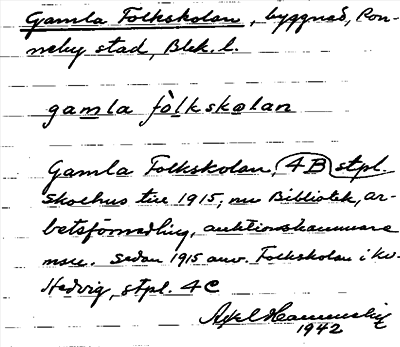 Gamla Folkskolan, byggnad, Ron-
neby stad, Blek. l.
gamla fòlkskolan
Gamla Folkskolan, 4B stpl.
Skolhus till 1915, nu Bibliotek, ar-
betsförmedling, auktionskammare
m.m. Sedan 1915 anv. Folkskolan i kv.
Hedvig, stpl. 4C
Axel
1942